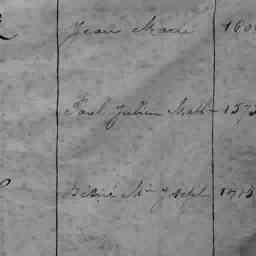 Jean Marie 160
Paul Julien Math 157
Désiré Mie Joseph 1715